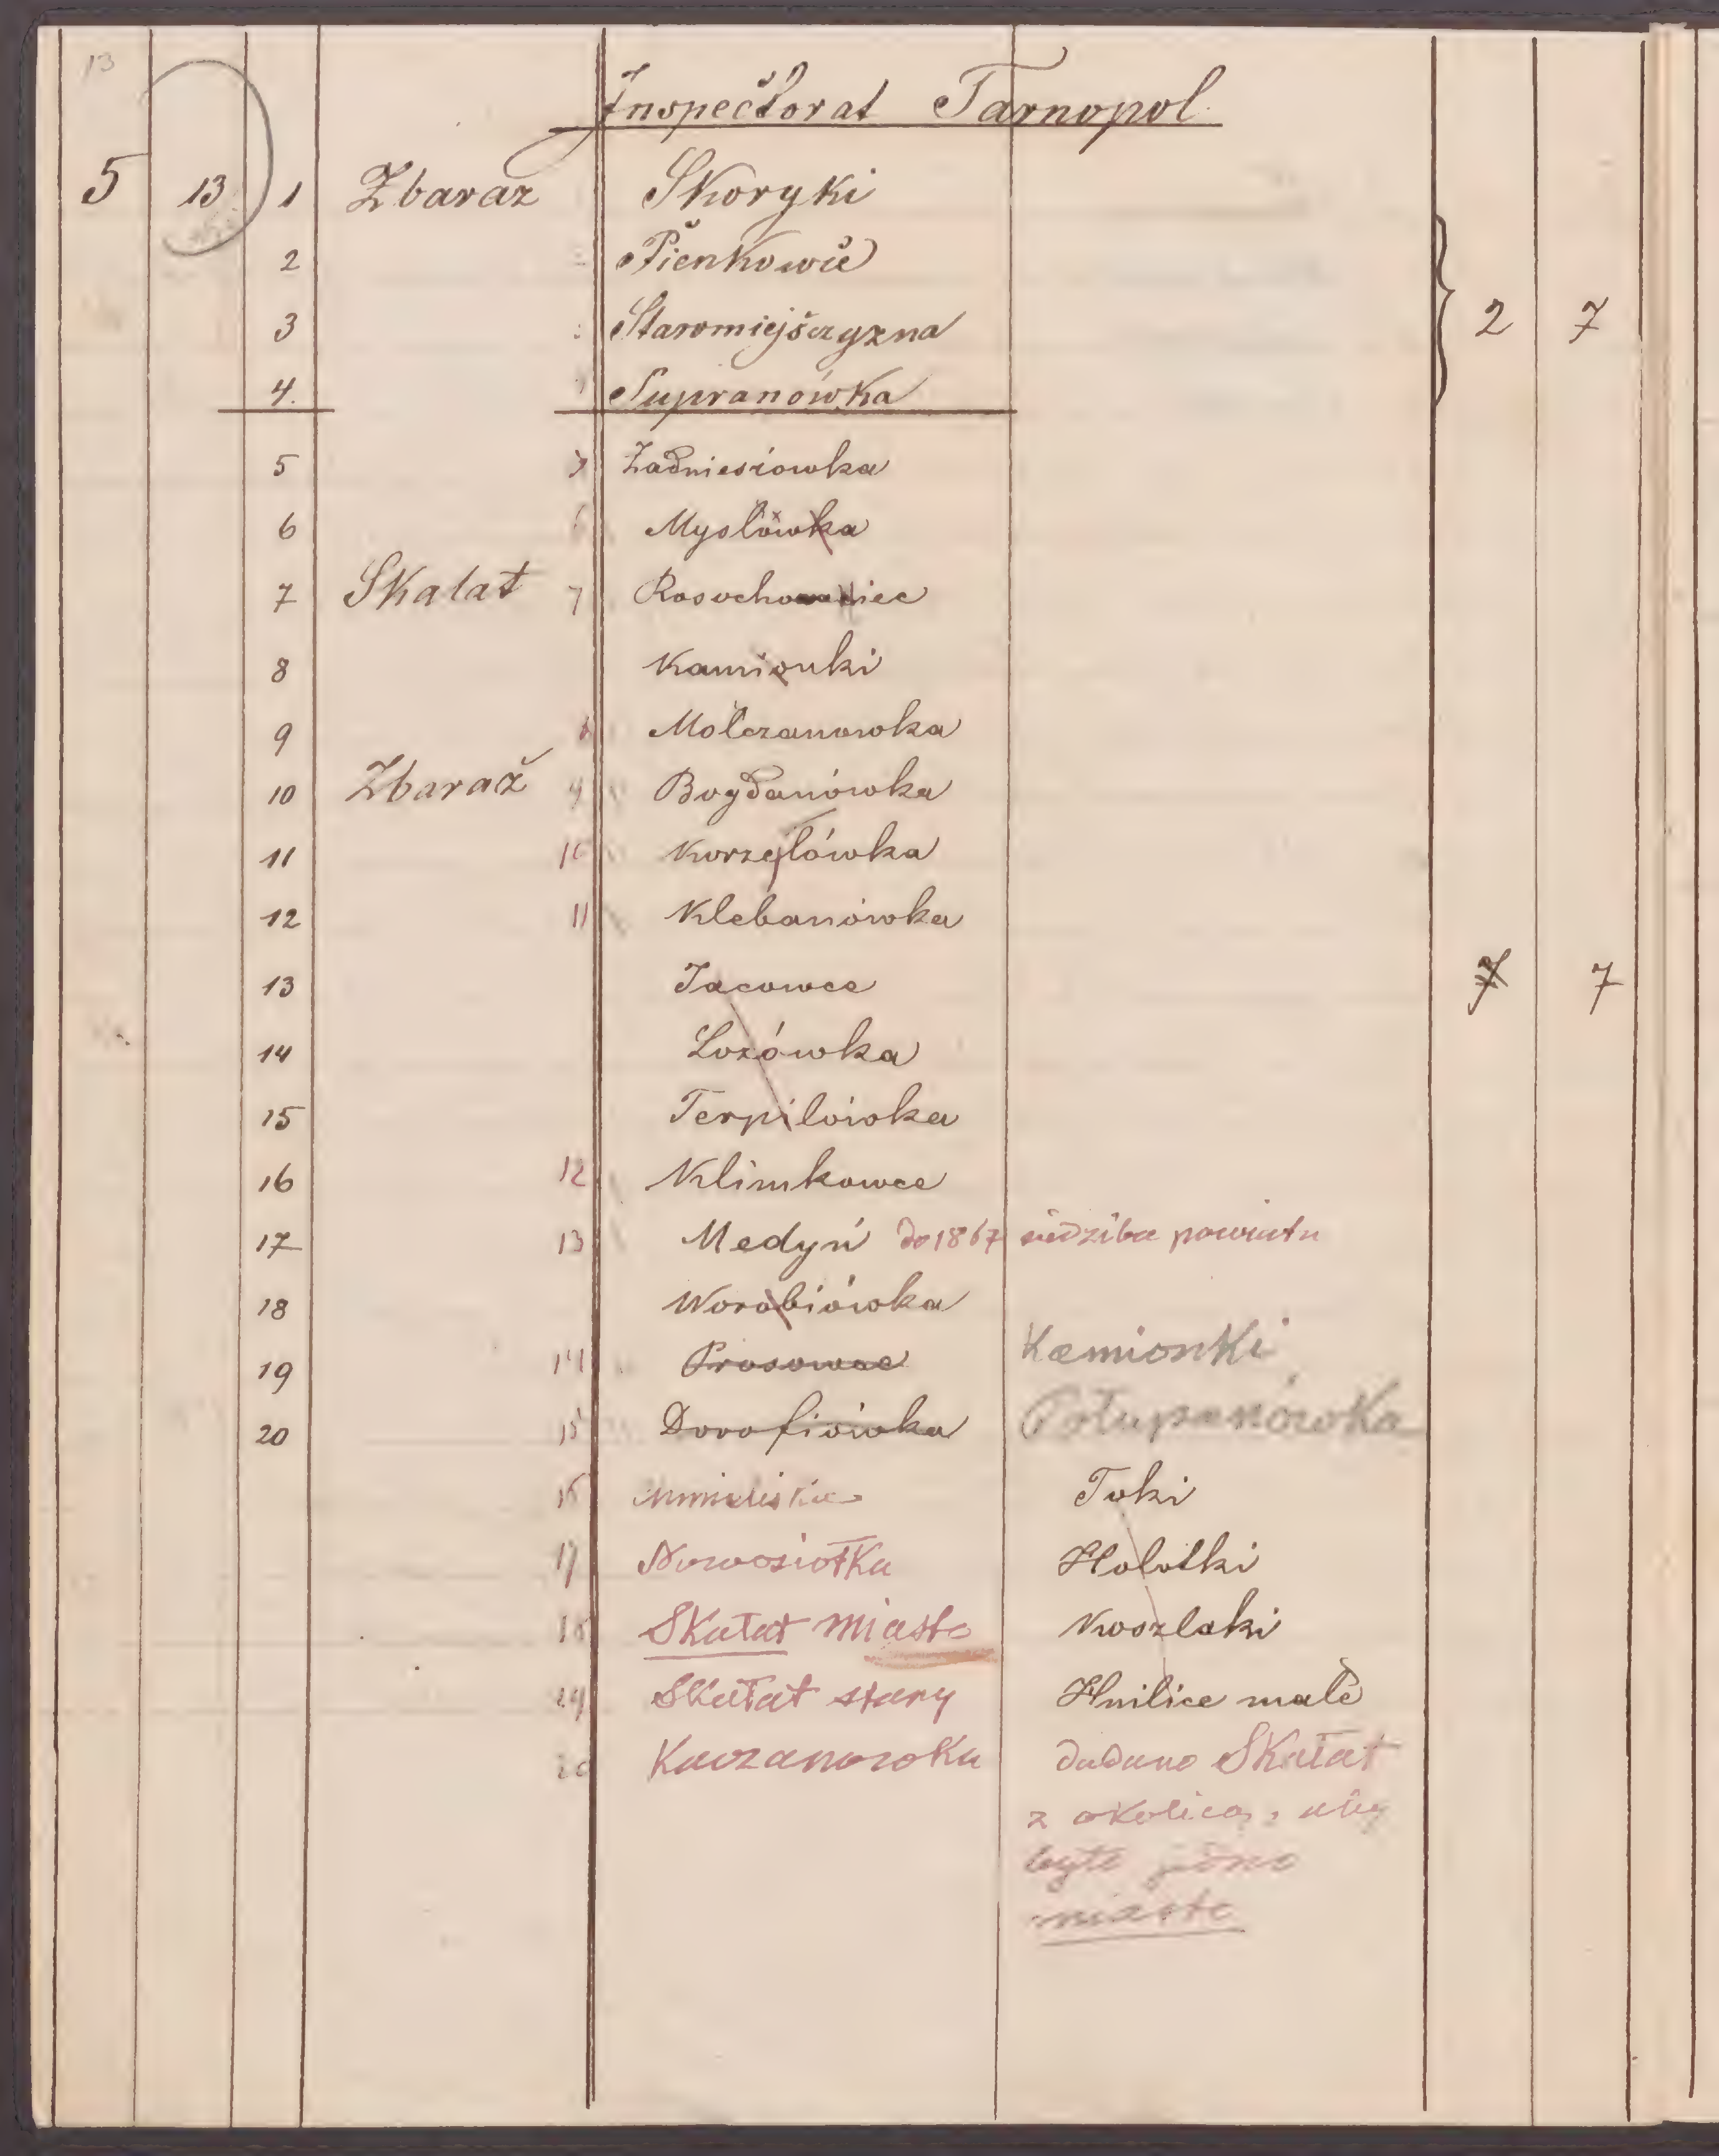 13
Inspectorat Tarnopol
5 13 1 Zbaraz Skoryki
2 Pienkowce
3 Staromiejszczyzna
4. Supranówka
5 Zadniesiowka
6 Mysłówka
7 Skalat 7 Rosochowaciec
8 Kamionki
9 Mołczanowka
10 Zbaraż 9 Bogdanówka
11 10 Korzyłówka
12 11 Klebanówka
13 Jacowce
14 Lozówka
15 Terpilówka
16 12 Klimkowce
17 13 Medyń do 1867 siedziba powiatu
18 Worobiówka
19 14 Prosowce Kamionki
20 15 Dorofiówka Połupanówka
16 Toki
17 Nowosiołka Holotki
18 Skałat miasto Koszlaki
19 Skałat stary Hnilice małe
20 Kaczanowka dodano Skałat
z okolicą, aby
było jedno
miasto
2 7
7 7